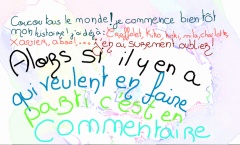 Coucou tous le monde! je commence bientôt
mon histoire! j'ai déjà: Kiko, mila, charlotte,
Xavier, ... j'en ai surement oublier!
Alors si il y en a
qui veulent en faire
parti c'est en
commentaire